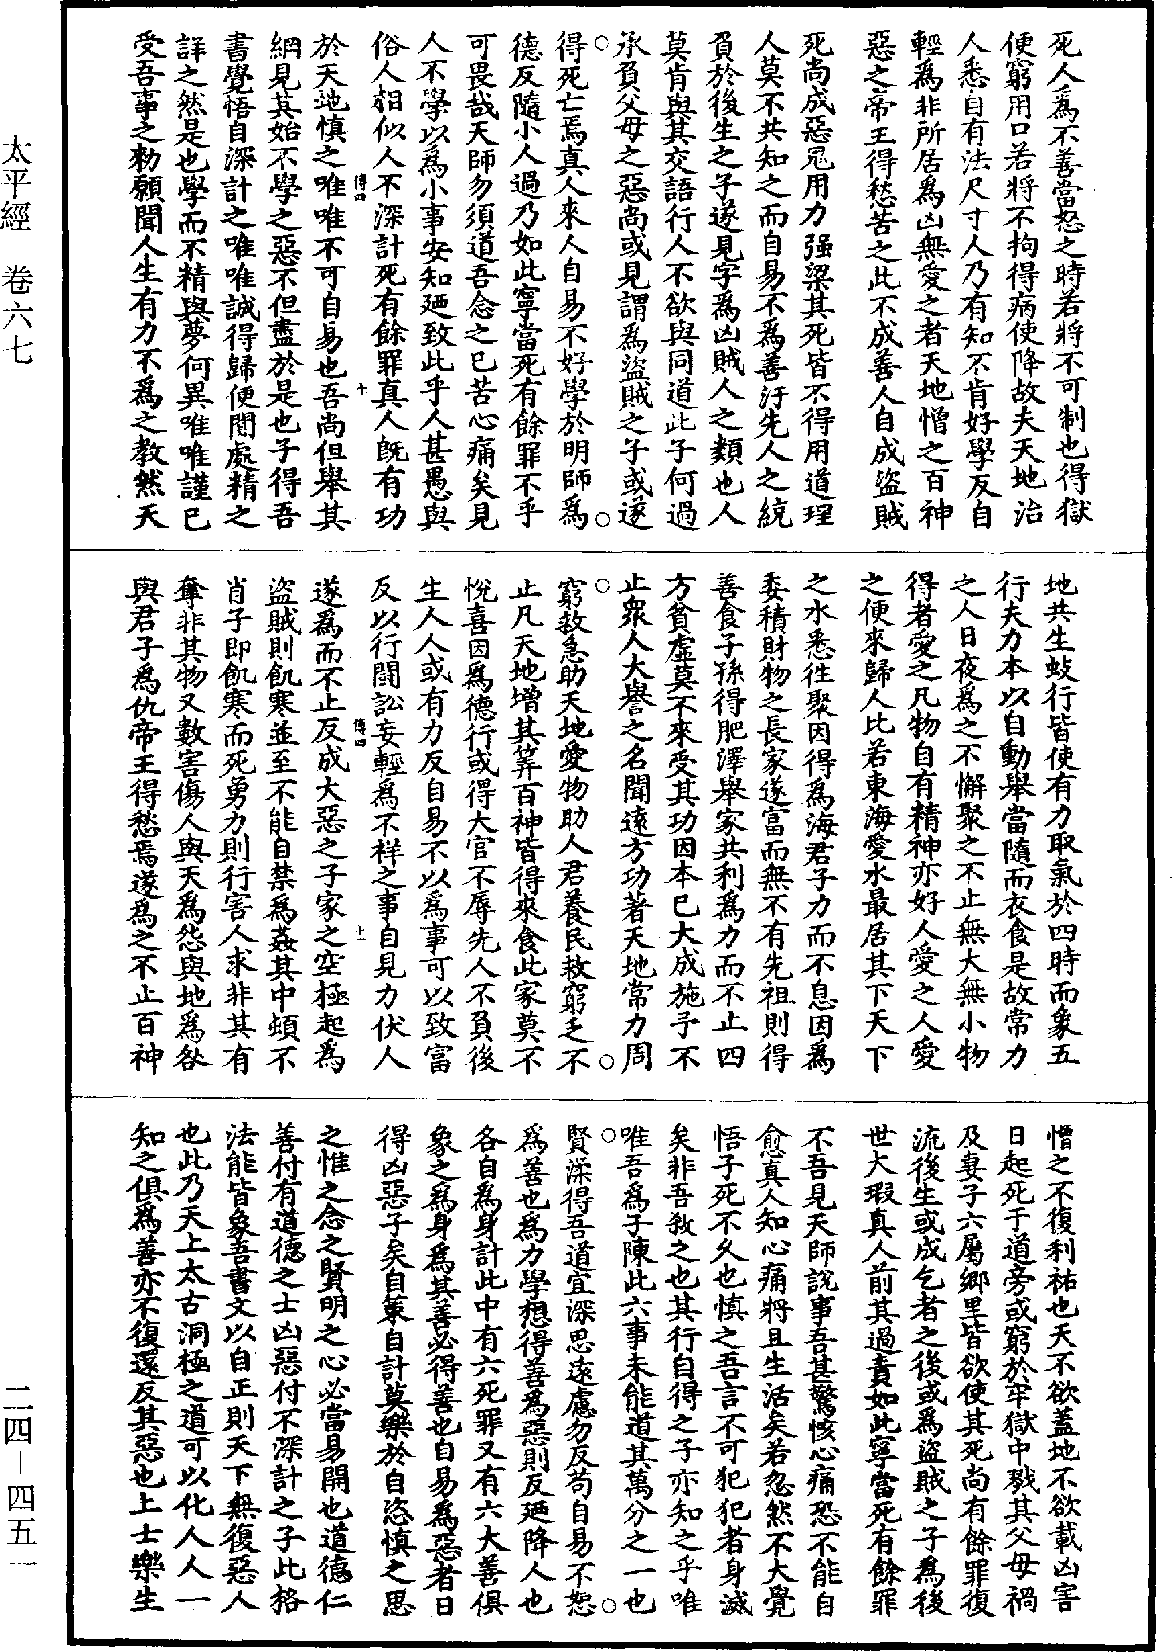 死人爲不善當怒之時若將不可制也得獄
便窮用口若將不拘得病使降故夫天地治
人悉自有法尺寸人乃有知不肯好學反自
輕爲非所居爲凶無愛之者天地憎之百神
惡之帝王得愁苦之此不成善人自成盜賊
死尚成惡鬼用力强梁其死皆不得用道理
人莫不共知之而自易不爲善汙先人之統
負於後生之子遂見字爲凶賊人之類也人
莫肯與其交語行人不欲與同道此子何過
承負父母之惡尚或見謂爲盜賊之子或遂
得死亡焉真人來人自易不好學於明師爲
德反隨小人過乃如此寧當死有餘罪不乎
可畏哉天師勿須道吾念之已苦心痛矣見
人不學以爲小事安知廼致此乎人甚愚與
俗人相似人不深計死有餘罪真人旣有功
傳四 十
於天地愼之唯唯不可自易也吾尚但舉其
綱見其始不學之惡不但盡於是也子得吾
書覺悟自深計之唯唯誠得歸便閒處精之
詳之然是也學而不精與夢何異唯唯謹已
受吾事之勑願聞人生有力不爲之教然天
地共生蚑行皆使有力取氣於四時而象五
行夫力本以自動舉當隨而衣食是故常力
之人日夜爲之不懈聚之不止無大無小物
得者愛之凡物自有精神亦好人愛之人愛
之便來歸人比若東海愛水最居其下天下
之水悉往聚因得爲海君子力而不息因爲
委積財物之長家遂富而無不有先祖則得
善食子孫得肥澤舉家共利爲力而不止四
方貧虛莫不來受其功因本已大成施予不
止眾人大譽之名聞遠方功著天地常力周
窮救急助天地愛物助人君養民救窮乏不
止凡天地增其筭百神皆得來食此家莫不
悅喜因爲德行或得大官不辱先人不負後
生人人或有力反自易不以爲事可以致富
反以行鬪訟妄輕爲不祥之事自見力伏人
傳四 十一
遂爲而不止反成大惡之子家之空極起爲
盜賊則飢寒並至不能自禁爲姦其中頑不
肖子即飢寒而死勇力則行害人求非其有
奪非其物又數害傷人與天爲怨與地爲咎
與君子爲仇帝王得愁焉遂爲之不止百神
憎之不復利祐也天不欲蓋地不欲載凶害
日起死于道旁或窮於牢獄中戮其父母禍
及妻子六屬鄉里皆欲使其死尚有餘罪復
流後生或成乞者之後或爲盜賊之子爲後
世大瑕真人前其過責如此寧當死有餘罪
不吾見天師說事吾甚驚駭心痛恐不能自
愈真人知心痛將且生活矣若忽然不大覺
悟子死不久也愼之吾言不可犯犯者身滅
矣非吾殺之也其行自得之子亦知之乎唯
唯吾爲子陳此六事未能道其萬分之一也
賢深得吾道宜深思遠慮勿反苟自易不恕
爲善也爲力學想得善爲惡則反廼降人也
各自爲身計此中有六死罪又有六大善俱
象之爲身爲其善必得善也自易爲惡者日
得凶惡子矣自策自計莫樂於自恣愼之思
之惟之念之賢明之心必當易開也道德仁
善付有道德之士凶惡付不深計之子此格
法能皆象吾書文以自正則天下無復惡人
也此乃天上太古洞極之道可以化人人一
知之俱爲善亦不復還反其惡也上士樂生
太平經 卷六七
二四－四五一